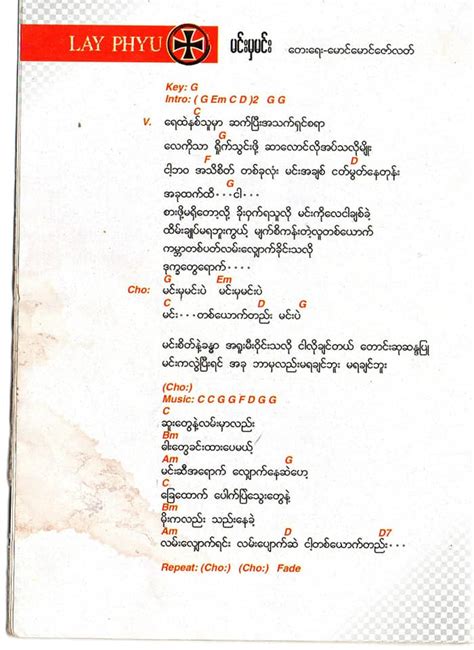 LAY PHYU မင်းမှမင်း တေးရေး-မောင်မောင်ဇော်လတ်
Key: G
Intro: ( G Em C D )2 G G
C
V. ရေထဲနစ်သူမှာ ဆက်ပြီးအသက်ရှင်စရာ
G
လေကိုသာ ရှိုက်သွင်းဖို့ ဆာလောင်လိုအပ်သလိုမျိုး
F D
ငါ့ဘဝ အသိစိတ် တစ်ခုလုံး မင်းအချစ် ငတ်မွတ်နေတုန်း
G
အခုထက်ထိ···ငါ···
စားဖို့မရှိတော့လို့ ခိုးဝှက်ရသူလို မင်းကိုလေငါချစ်ခဲ့
ထိမ်းချုပ်မရဘူးကွယ့် မျက်စိကန်းတဲ့လူတစ်ယောက်
ကမ္ဘာတစ်ပတ်လမ်းလျှောက်ခိုင်းသလို
ဒုက္ခတွေရောက်····
G Em
Cho: မင်းမှမင်းပဲ မင်းမှမင်းပဲ
C D G
မင်း···တစ်ယောက်တည်း မင်းပဲ
မင်းစိတ်နဲ့ခန္ဓာ အရူးမီးဝိုင်းသလို ငါလိုချင်တယ် တောင်းဆုဆန္ဒပြု
မင်းကလွဲပြီးရင် အခု ဘာမှလည်းမရချင်ဘူး မရချင်ဘူး
(Cho:)
Music: C C G G F D G G
C
ဆူးတွေနဲ့လမ်းမှာလည်း
Bm
ဓါးတွေခင်းထားပေမယ့်
Am G
မင်းဆီအရောက် လျှောက်နေဆဲဟေ့
C
ခြေထောက် ပေါက်ပြဲသွေးတွေနဲ့
Bm
မိုးကလည်း သည်းနေခဲ့
Am D D7
လမ်းလျှောက်ရင်း လမ်းပျောက်ဆဲ ငါ့တစ်ယောက်တည်း···
Repeat: (Cho:) (Cho:) Fade